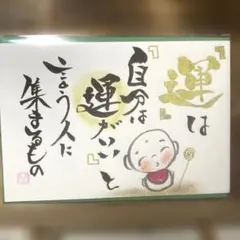 『運』は
自分は
『運がいい』と
言う人に
集まるもの